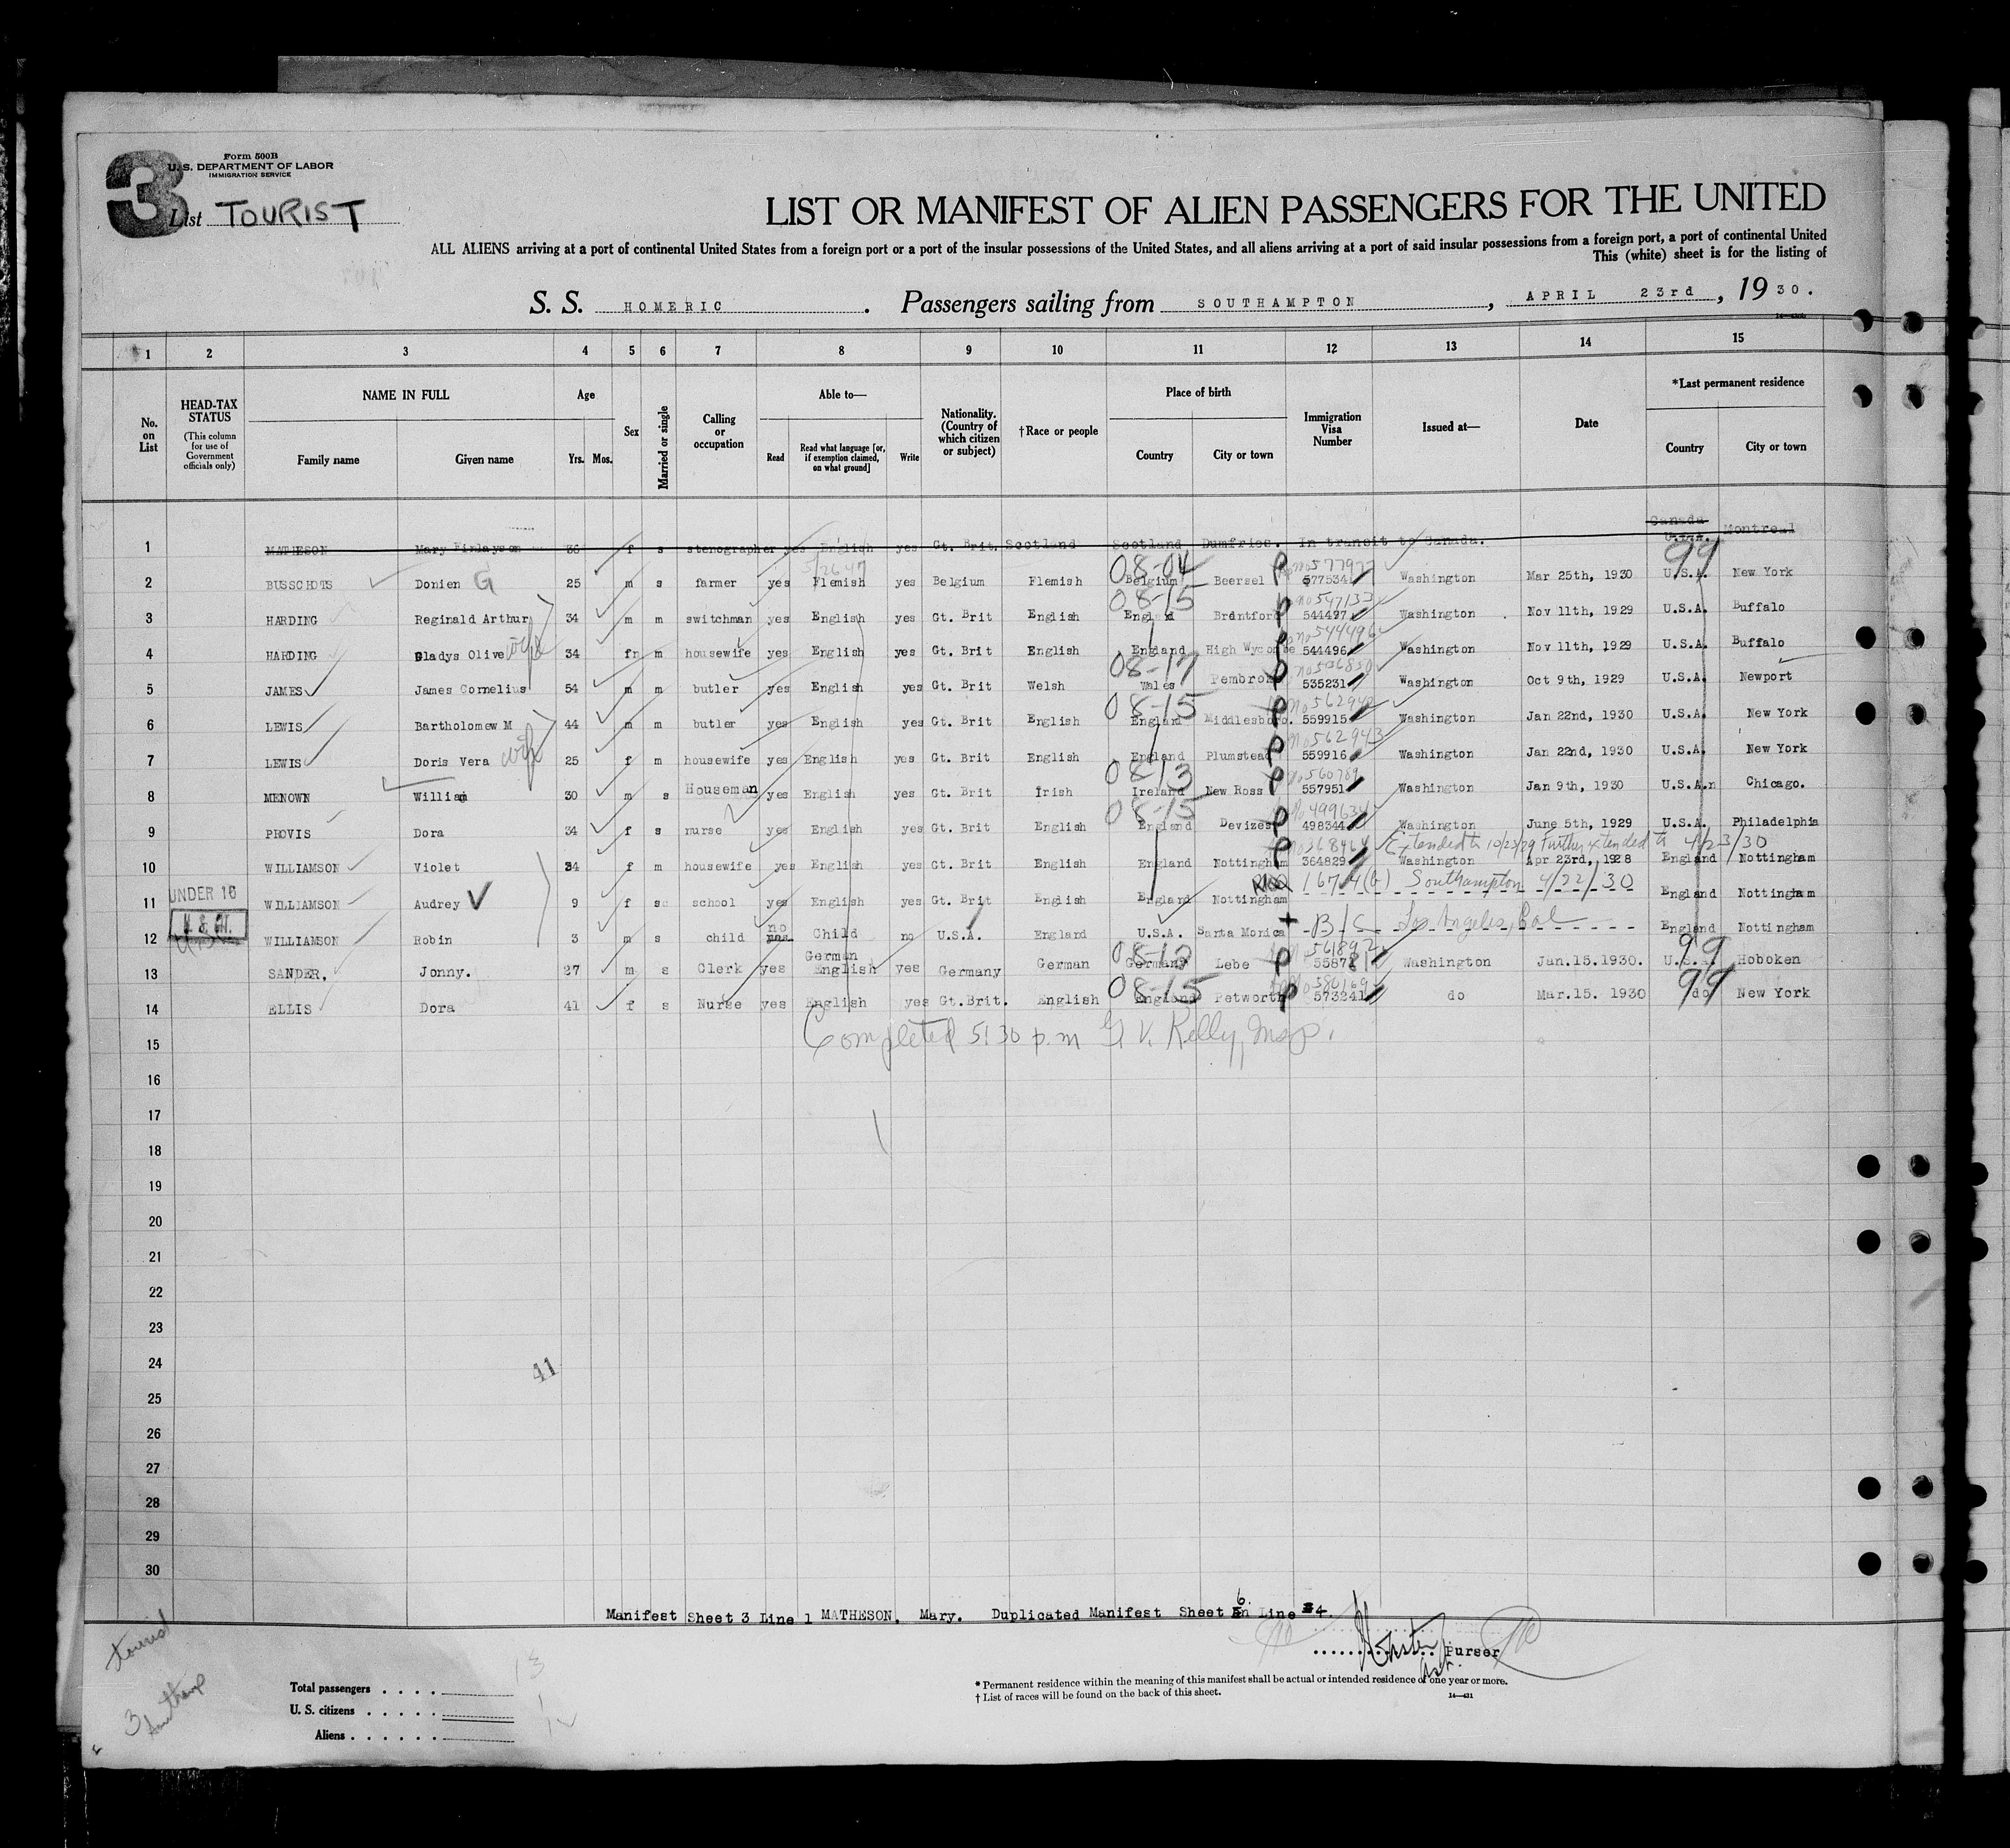 3
Form 500B
U. S. DEPARTMENT OF LABOR
IMMIGRATION SERVICE
List TOURIST
LIST OR MANIFEST OF ALIEN PASSENGERS FOR THE UNITED
ALL ALIENS arriving at a port of continental United States from a foreign port or a port of the insular possessions of the United States, and all aliens arriving at a port of said insular possessions from a foreign port, a port of continental United
This (white) sheet is for the listing of
S. S. HOMERIC. Passengers sailing from SOUTHAMPTON, APRIL 23rd, 1930.
1 2 3 4 5 6 7 8 9 10 11 12 13 14 15
No. on List
HEAD-TAX STATUS
(This column for use of Government officials only)
NAME IN FULL
Family name Given name
Age
Yrs. Mos.
Sex
Married or single
Calling or occupation
Able to—
Read
Read what language [or, if exemption claimed, on what ground]
Write
Nationality. (Country of which citizen or subject)
†Race or people
Place of birth
Country City or town
Immigration Visa Number
Issued at—
Date
*Last permanent residence
Country City or town
Canada
1 MATHESON Mary Finlayson 36 f s stenographer yes English yes Gt. Brit. Scotland Scotland Dumfries. In transit to Canada. U.S.A. Montreal
5/2647 08-04 577977 99
2 BUSSCHOTS Donien G 25 m s farmer yes Flemish yes Belgium Flemish Belgium Beersel P 577534 Washington Mar 25th, 1930 U.S.A. New York
08-15 No 547133
3 HARDING Reginald Arthur 34 m m switchman yes English yes Gt. Brit English England Brentford P 544497 Washington Nov 11th, 1929 U.S.A. Buffalo
No 544496
4 HARDING Gladys Olive wife 34 f m housewife yes English yes Gt. Brit English England High Wycombe 544496 Washington Nov 11th, 1929 U.S.A. Buffalo
08-17 No 536850
5 JAMES James Cornelius 54 m m butler yes English yes Gt. Brit Welsh Wales Pembroke P 535231 Washington Oct 9th, 1929 U.S.A. Newport
08-15 No 562942
6 LEWIS Bartholomew M 44 m m butler yes English yes Gt. Brit English England Middlesboro. P 559915 Washington Jan 22nd, 1930 U.S.A. New York
No 562943
7 LEWIS Doris Vera wife 25 f m housewife yes English yes Gt. Brit English England Plumstead P 559916 Washington Jan 22nd, 1930 U.S.A. New York
0813 No 560789
8 MENOWN William 30 m s Houseman yes English yes Gt. Brit Irish Ireland New Ross P 557951 Washington Jan 9th, 1930 U.S.A. Chicago.
08-15 No 499634
9 PROVIS Dora 34 f s nurse yes English yes Gt. Brit English England Devizes P 498344 Washington June 5th, 1929 U.S.A. Philadelphia
No 368464 Extended to 10/23/29 Further extended to 4/23/30
10 WILLIAMSON Violet 34 f m housewife yes English yes Gt. Brit English England Nottingham P 364829 Washington Apr 23rd, 1928 England Nottingham
UNDER 16
11 WILLIAMSON Audrey V 9 f s school yes English yes Gt. Brit English England Nottingham 1674(b) Southampton 4/22/30 England Nottingham
no
12 WILLIAMSON Robin 3 m s child Child no U.S.A. England U.S.A. Santa Monica + B/C Los Angeles, Cal England Nottingham
German 08-12 561892 99
13 SANDER, Jonny. 27 m s Clerk yes English yes Germany German Germany Lebe P 55871 Washington Jan.15.1930. U.S.A. Hoboken
08-15 580169 99
14 ELLIS Dora 41 f s Nurse yes English yes Gt.Brit. English England Petworth P 573241 do Mar.15. 1930 do New York
Completed 5:30 p.m G. V. Kelly, Insp.
15
16
17
18
19
20
21
22
23
24
41
25
26
27
28
29
30
Manifest Sheet 3 Line 1 MATHESON, Mary. Duplicated Manifest Sheet 6. Line 4.
Purser
Asst.
tourist
3
Total passengers 13
U. S. citizens 1
Aliens
* Permanent residence within the meaning of this manifest shall be actual or intended residence of one year or more.
† List of races will be found on the back of this sheet.
14—431